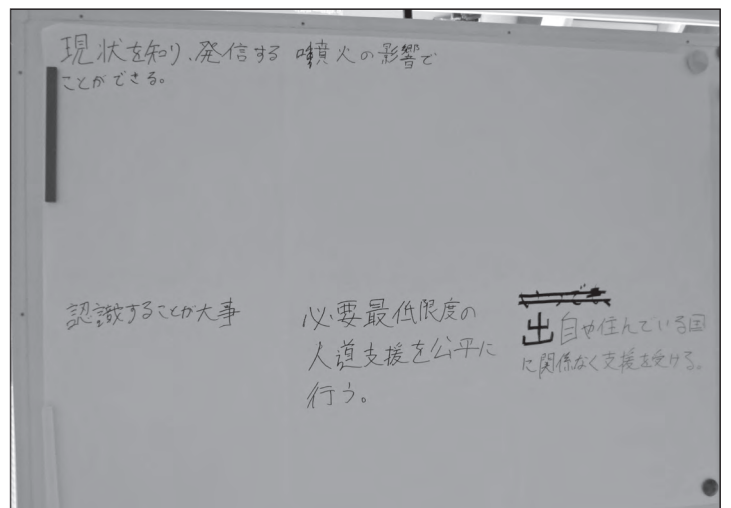 現状を知り、発信する
ことができる。
噴火の影響で
認識することが大事
必要最低限度の
人道支援を公平に
行う。
出自や住んでいる国
に関係なく支援を受ける。